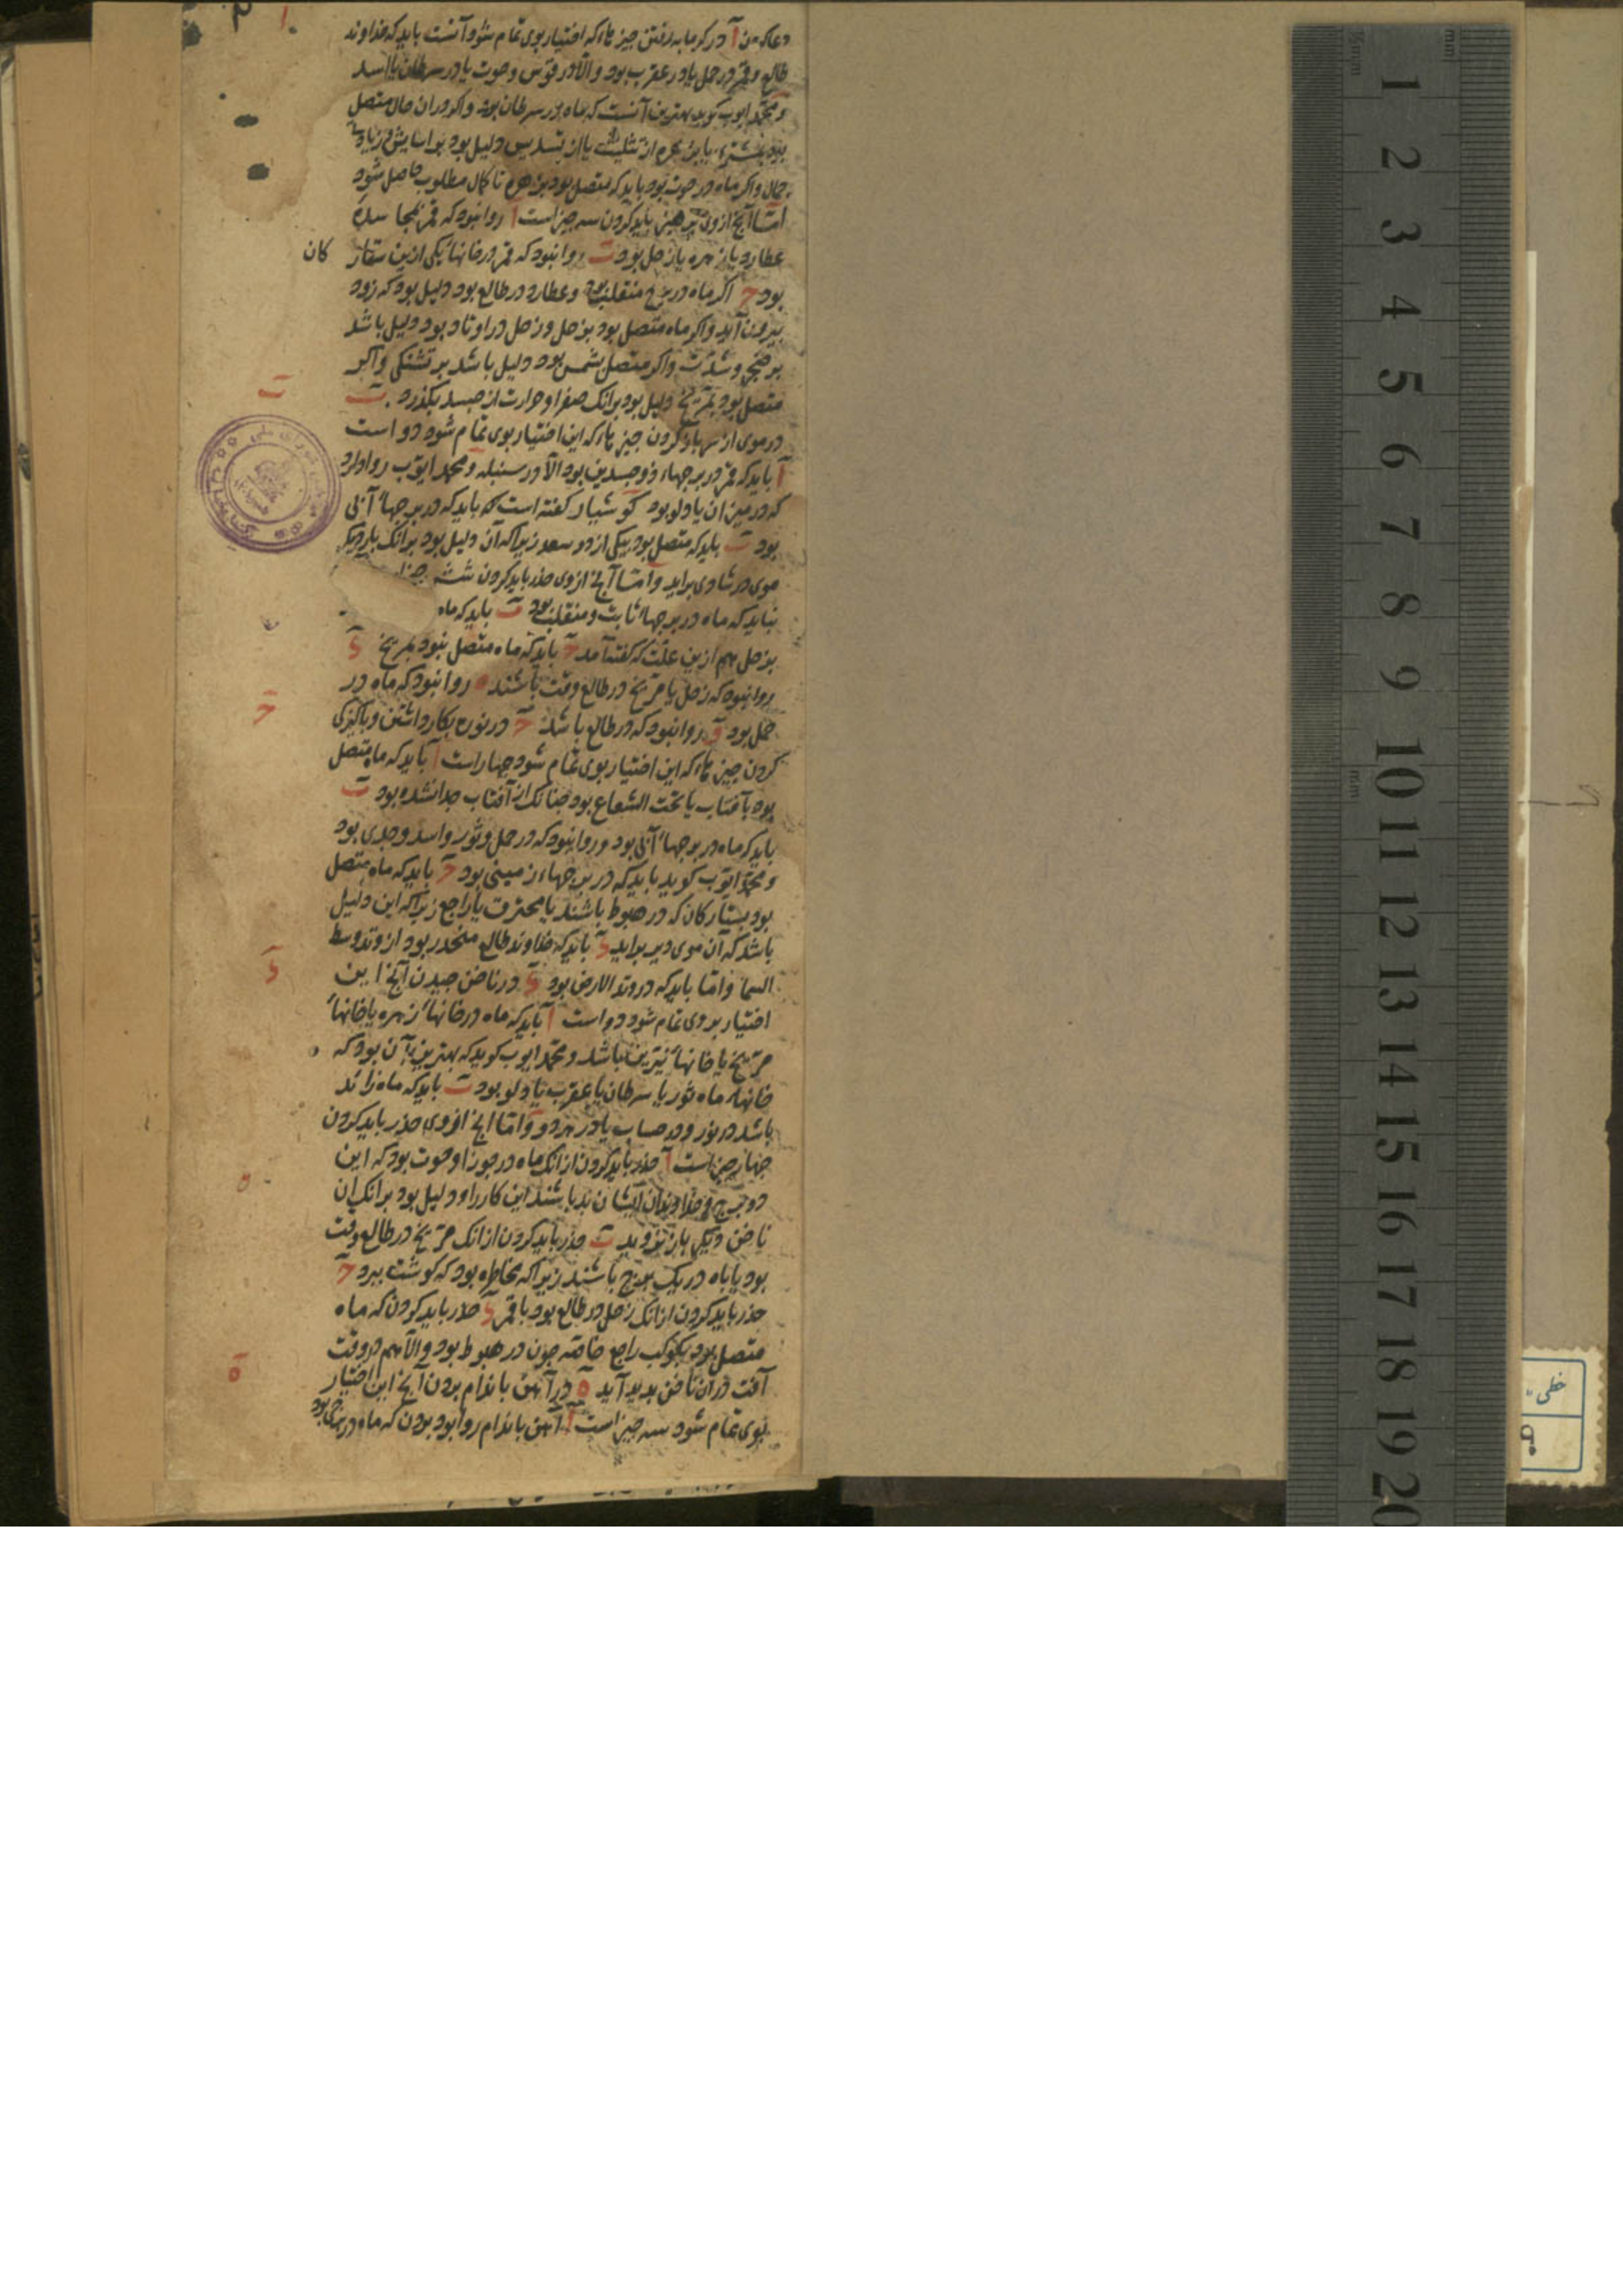 در کرمابه رفتن چیزهاء که اختیار بوی تمام شود آنست باید که خداوند
طالع و قمر در حمل یا در عقرب بود والا در قوس و حوت یا در سرطان یا اسد
و محمد ایوب کوید بهترین آنست که ماه در سرطان بود و اکر در ان حال متصل
بود بمشتری یا بزهره از تثلیث یا از تسدیس دلیل بود بر آسایش و زیادت
جمال و اکر ماه در حوت بود باید که متصل بود بزهره تا کمال مطلوب حاصل شود
اما آنچ ازوی پرهیز باید کردن سه چیز است آ روا نبود که قمر بجا سده
عطارد یا زهره یا زحل بود ب روا نبود که قمر در خانهاء یکی ازین ستار کان
بود ح اکر ماه در برج منقلب بود و عطارد در طالع بود دلیل بود که زود
بیرون آید و اکر ماه متصل بود بزحل و زحل در اوتاد بود دلیل باشد
بر رنجی و شدت و اکر متصل شمس بود دلیل باشد بر تشنکی و اکر
متصل بود بمریخ دلیل بود برانک صفرا و حرارت از جسد بکذرد ب
در موی از سر باز کردن چیزهاء که این اختیار بوی تمام شود دو است
آ باید که قمر در برجهاء ذوجسدین بود الا در سنبله و محمد ایوب روا دارد
که در میزان یا دلو بود کوشیار کفته است که باید که در برجهاء آبی
بود ب باید که متصل بود بیکی از دو سعد زیرا که آن دلیل بود برانک بار دیکر
موی در شادی براید و اما آنچ ازوی حذر باید کردن شش چیز
نباید که ماه در برجهاء ثابت و منقلب بود ب باید که ماه
بزحل هم ازین علت که کفته آمد ح باید که ماه متصل نبود بمریخ د
روا نبود که زحل یا مریخ در طالع وقت باشند ه روا نبود که ماه در
حمل بود و روا نبود که در طالع باشد ح در نوره بکار داشتن و پاکیزکی
کردن چیزهاء که این اختیار بوی تمام شود چهار است آ باید که ماه متصل
بود بآفتاب یا تحت الشعاع بود چنانک از آفتاب جدا نشده بود ب
باید که ماه در برجهاء آبی بود و روا نبود که در حمل و ثور و اسد و جدی بود
و محمد ایوب کوید باید که در برجهاء زمینی بود ح باید که ماه متصل
بود بستارکان که در هبوط باشند یا محترق یا راجع زیرا که این دلیل
باشد که آن موی دیر براید د باید که خداوند طالع منحدر بود از وتد وسط
السما و اما باید که در وتد الارض بود د در ناخن چیدن آنچ این
اختیار بروی تمام شود دو است آ باید که ماه در خانهاء زهره یا خانهاء
مریخ یا خانهاء نیرین باشد و محمد ایوب کوید که بهترین آن بود که
خانهاء ماه ثور یا سرطان یا عقرب یا دلو بود ب باید که ماه زائد
باشد در نور و در حساب یا در هر دو و اما انچ ازوی حذر باید کردن
چهار چیز است آ حذر باید کردن از انک ماه در جوزا و حوت بود که این
دو برج و خداوندان ایشان بد باشند این کار را و دلیل بود برانک ان
ناخن دیکر باره نروید ب حذر باید کردن از انک مریخ در طالع وقت
بود یا با ماه در یک برج باشند زیرا که مخاطره بود که کوشت ببرد ح
حذر باید کردن از انک زحل در طالع بود با قمر د حذر باید کردن که ماه
متصل بود بکوکب راجع خاصه چون در هبوط بود والا هم در وقت
آفت در آن ناخن بدید آید ه در آهن باندام بردن آنچ این اختیار
بوی تمام شود سه چیز است آ آهن باندام روا بود بردن که ماه در برجی بود
ب
ح
د
ه
1
2
3
4
5
6
7
8
9
10
11
12
13
14
15
16
17
18
19
20
mm
½mm
خطی